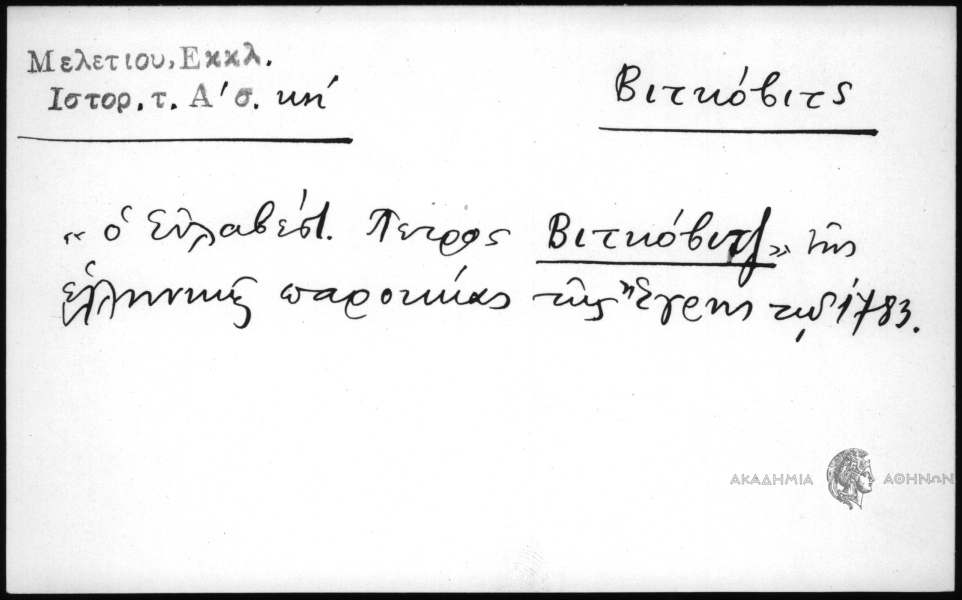 Μελετιου, Εκκλ.
Ιστορ. τ. Α' σ. κη'
Βιτκόβιτς
„ ὁ εὐλαβέστ. Πετρος Βιτκόβιτζ „ τῆς
ἑλληνικῆς παροικίας τῆς Ἔγρης τῷ 1783.
ΑΚΑΔΗΜΙΑ ΑΘΗΝΩΝ